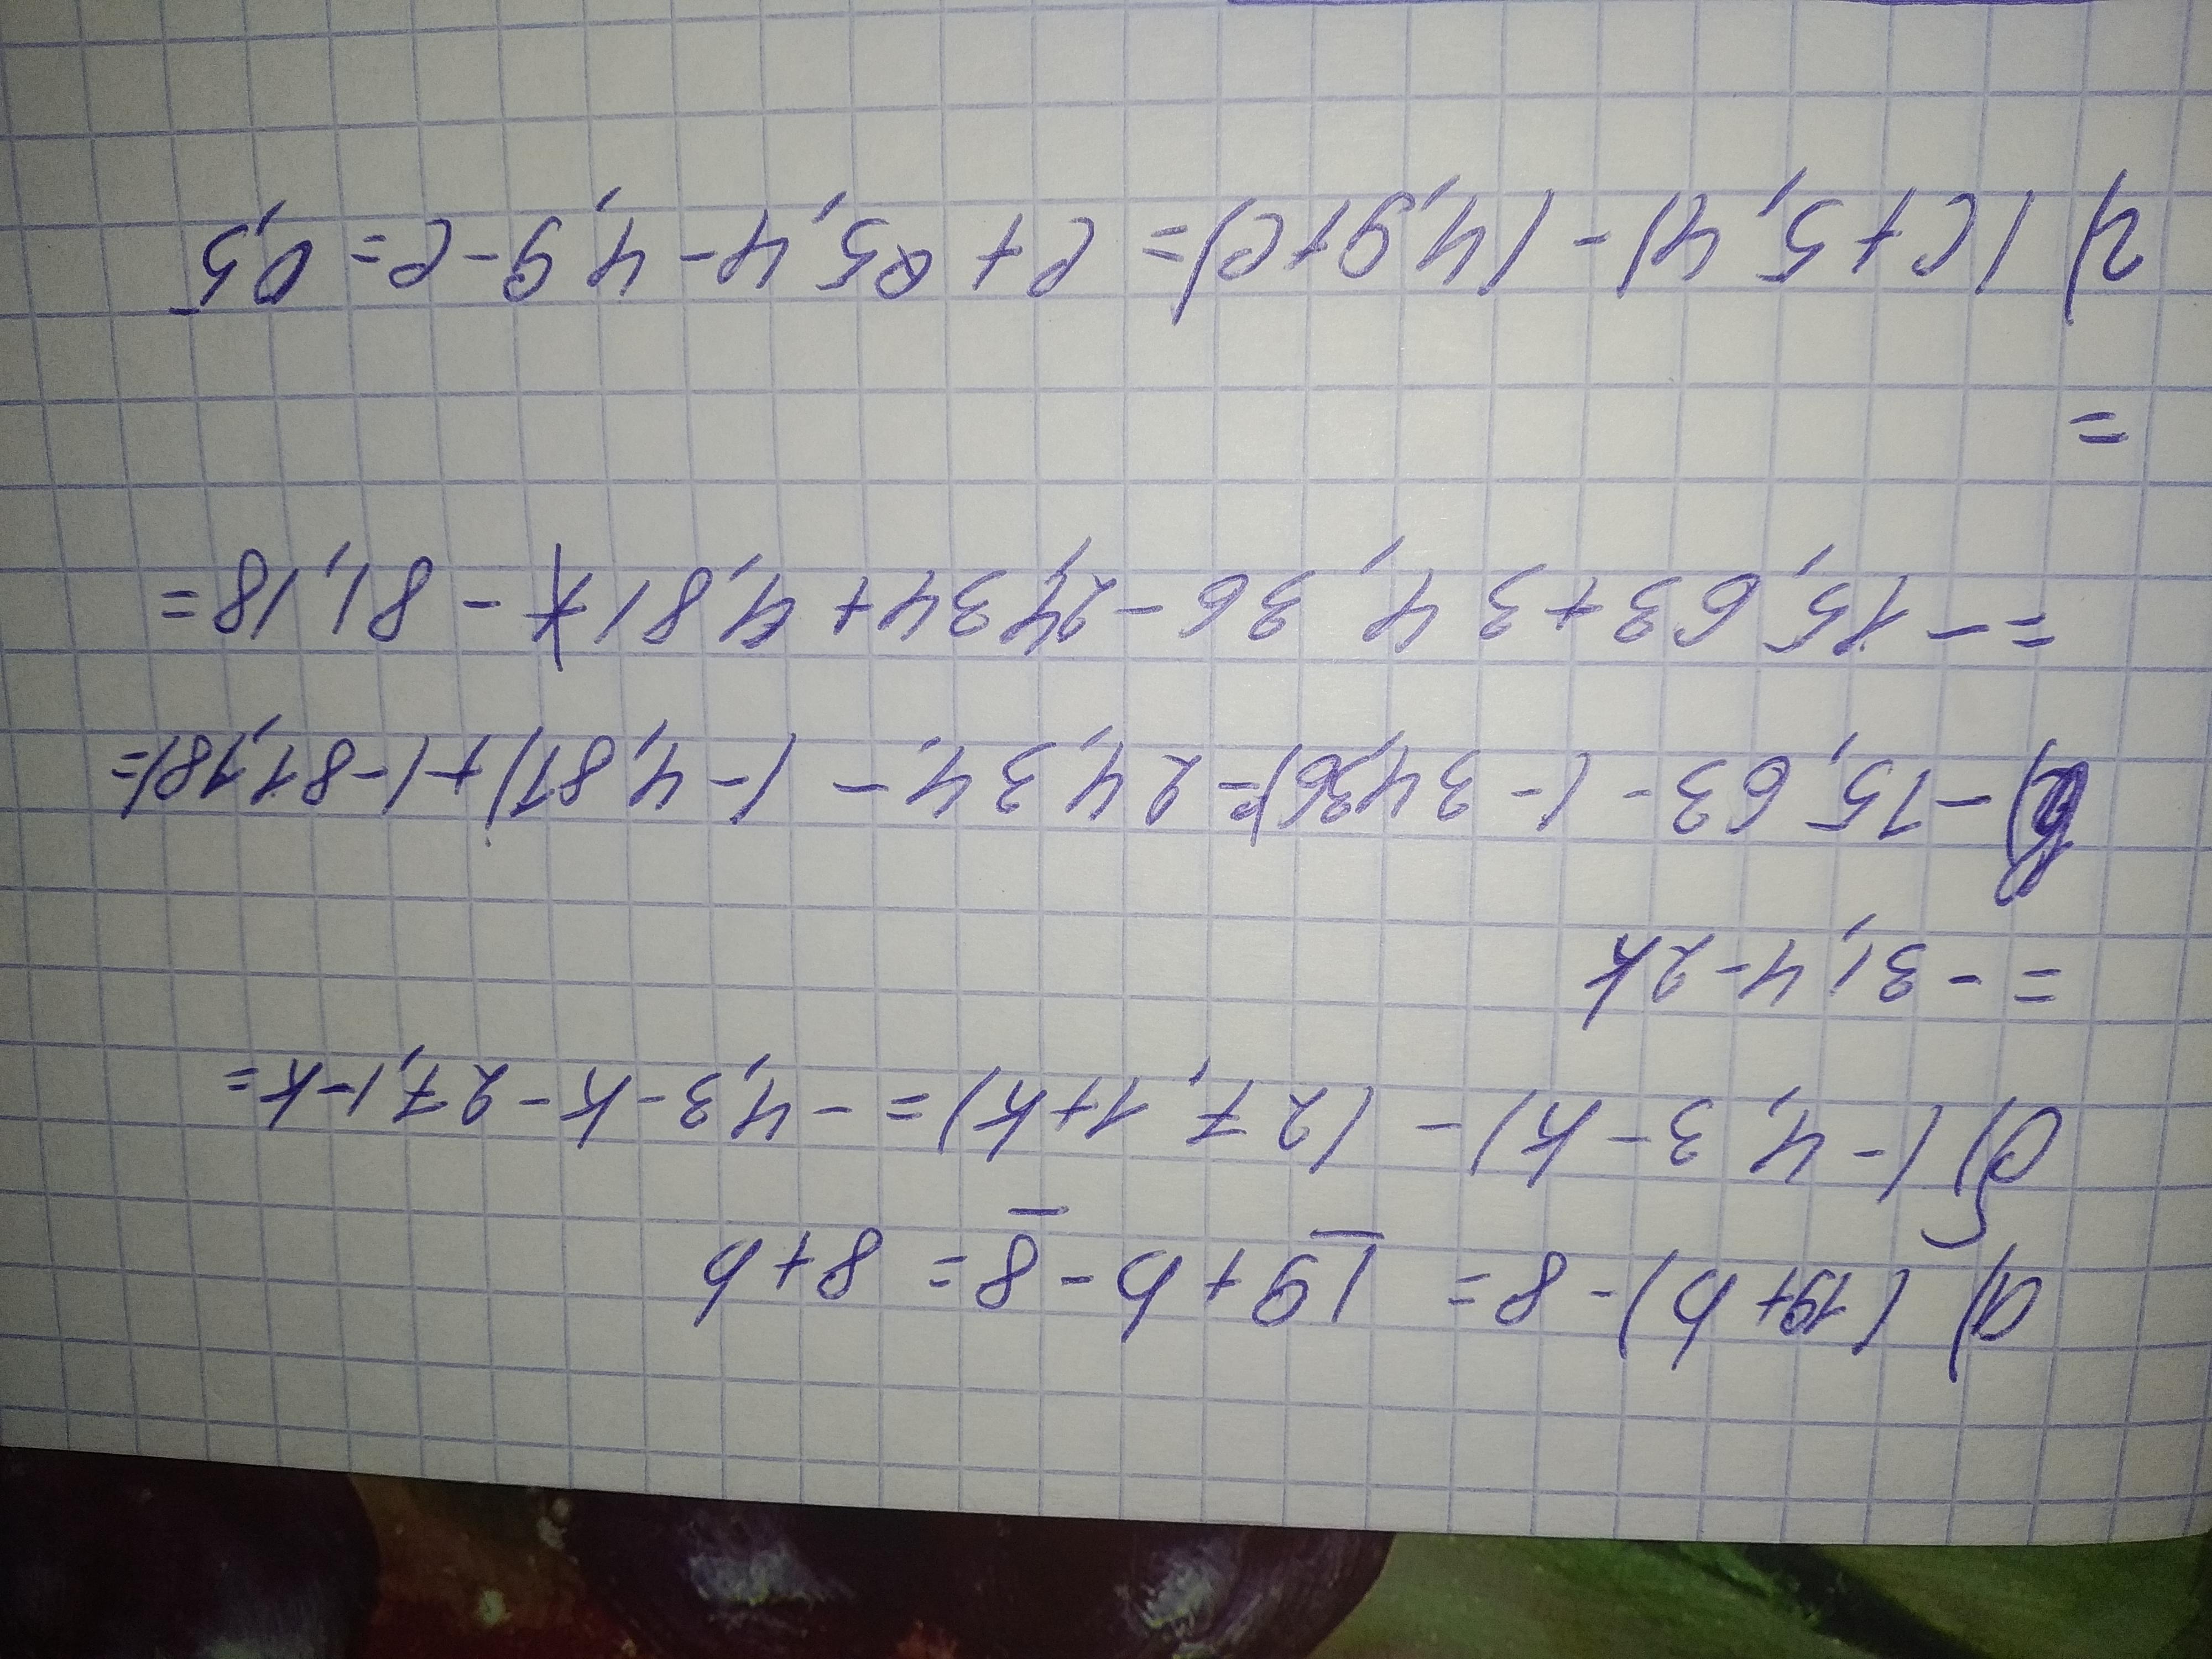 а) (19+b)-8= 19+b-8= 8+b
б) (-4,3-k)-(27,1+k)=-4,3-k-27,1-k=
=-31,4-2k
в) -15,63-(-34,36)-24,34-(-4,81)+(-81,18)=
=-15,63+34,36-24,34+4,81-81,18=
=
г) (c+5,4)-(4,9+c)=c+5,4-4,9-c=0,5